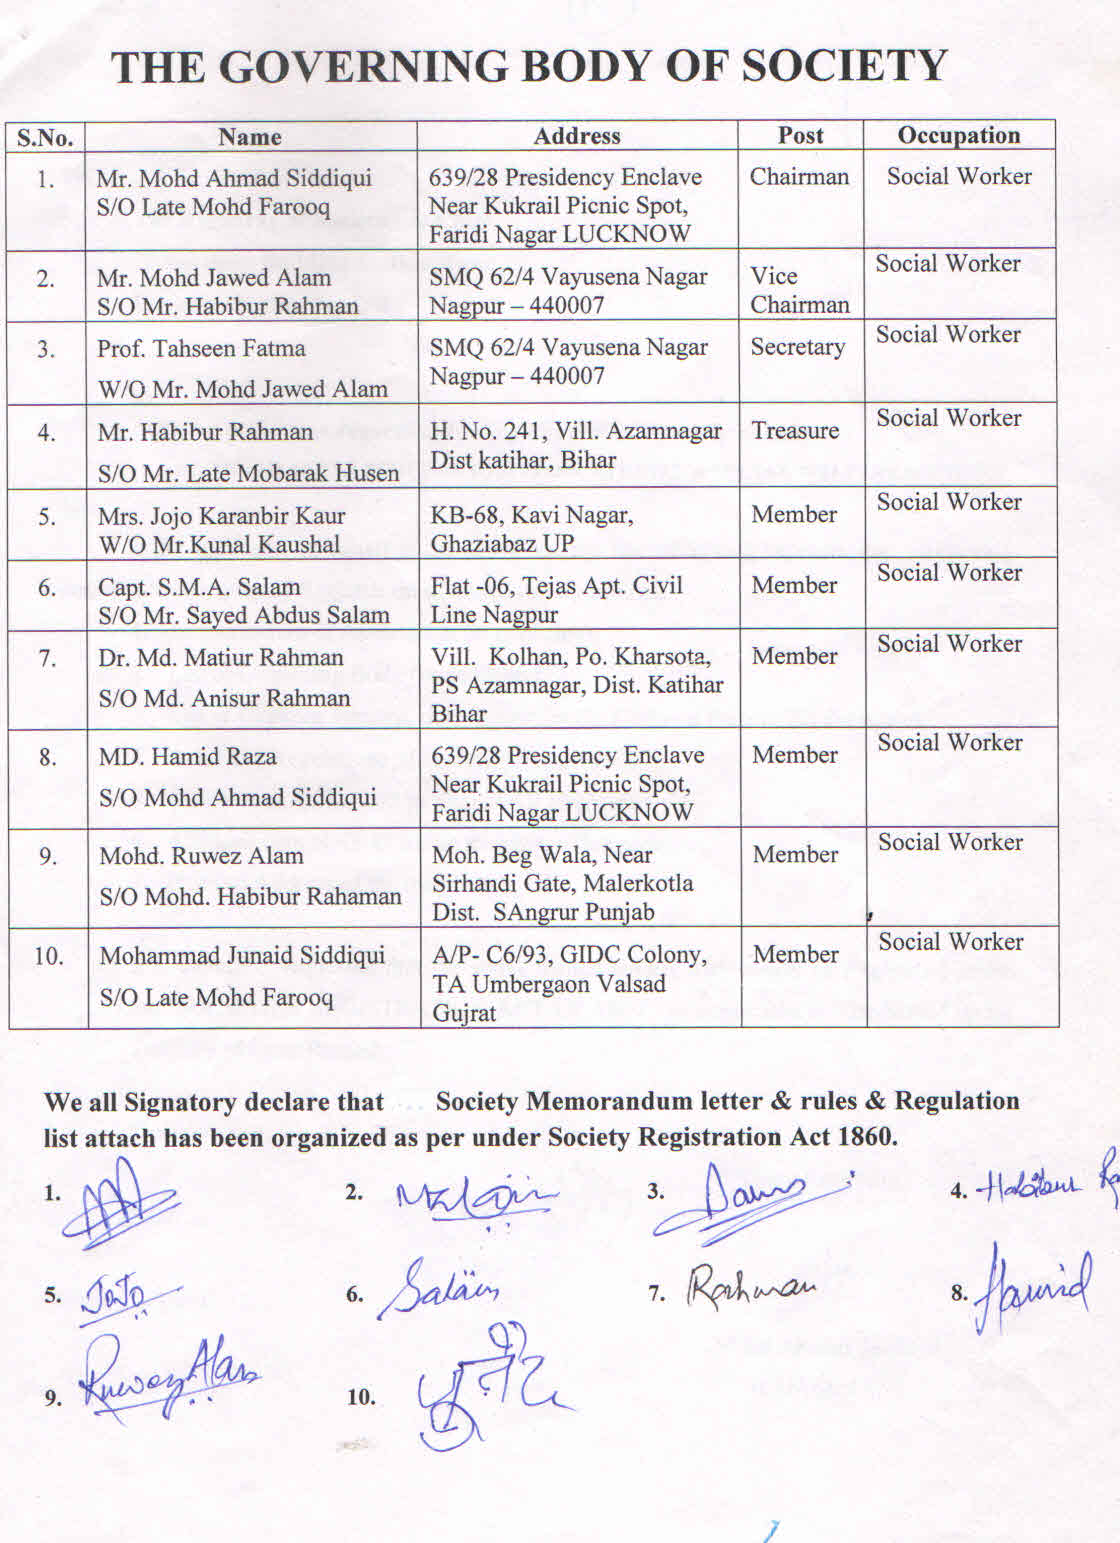 THE GOVERNING BODY OF SOCIETY
S.No. Name Address Post Occupation
1. Mr. Mohd Ahmad Siddiqui 639/28 Presidency Enclave Chairman Social Worker
S/O Late Mohd Farooq Near Kukrail Picnic Spot,
Faridi Nagar LUCKNOW
2. Mr. Mohd Jawed Alam SMQ 62/4 Vayusena Nagar Vice Social Worker
S/O Mr. Habibur Rahman Nagpur – 440007 Chairman
3. Prof. Tahseen Fatma SMQ 62/4 Vayusena Nagar Secretary Social Worker
Nagpur – 440007
W/O Mr. Mohd Jawed Alam
4. Mr. Habibur Rahman H. No. 241, Vill. Azamnagar Treasure Social Worker
Dist katihar, Bihar
S/O Mr. Late Mobarak Husen
5. Mrs. Jojo Karanbir Kaur KB-68, Kavi Nagar, Member Social Worker
W/O Mr.Kunal Kaushal Ghaziabaz UP
6. Capt. S.M.A. Salam Flat -06, Tejas Apt. Civil Member Social Worker
S/O Mr. Sayed Abdus Salam Line Nagpur
7. Dr. Md. Matiur Rahman Vill. Kolhan, Po. Kharsota, Member Social Worker
S/O Md. Anisur Rahman PS Azamnagar, Dist. Katihar
Bihar
8. MD. Hamid Raza 639/28 Presidency Enclave Member Social Worker
S/O Mohd Ahmad Siddiqui Near Kukrail Picnic Spot,
Faridi Nagar LUCKNOW
9. Mohd. Ruwez Alam Moh. Beg Wala, Near Member Social Worker
S/O Mohd. Habibur Rahaman Sirhandi Gate, Malerkotla
Dist. SAngrur Punjab
10. Mohammad Junaid Siddiqui A/P- C6/93, GIDC Colony, Member Social Worker
S/O Late Mohd Farooq TA Umbergaon Valsad
Gujrat
We all Signatory declare that Society Memorandum letter & rules & Regulation
list attach has been organized as per under Society Registration Act 1860.
1. 2. 3. 4. Habibur
5. JoJo 6. Salam 7. Rahman 8. Hamid
9. 10.